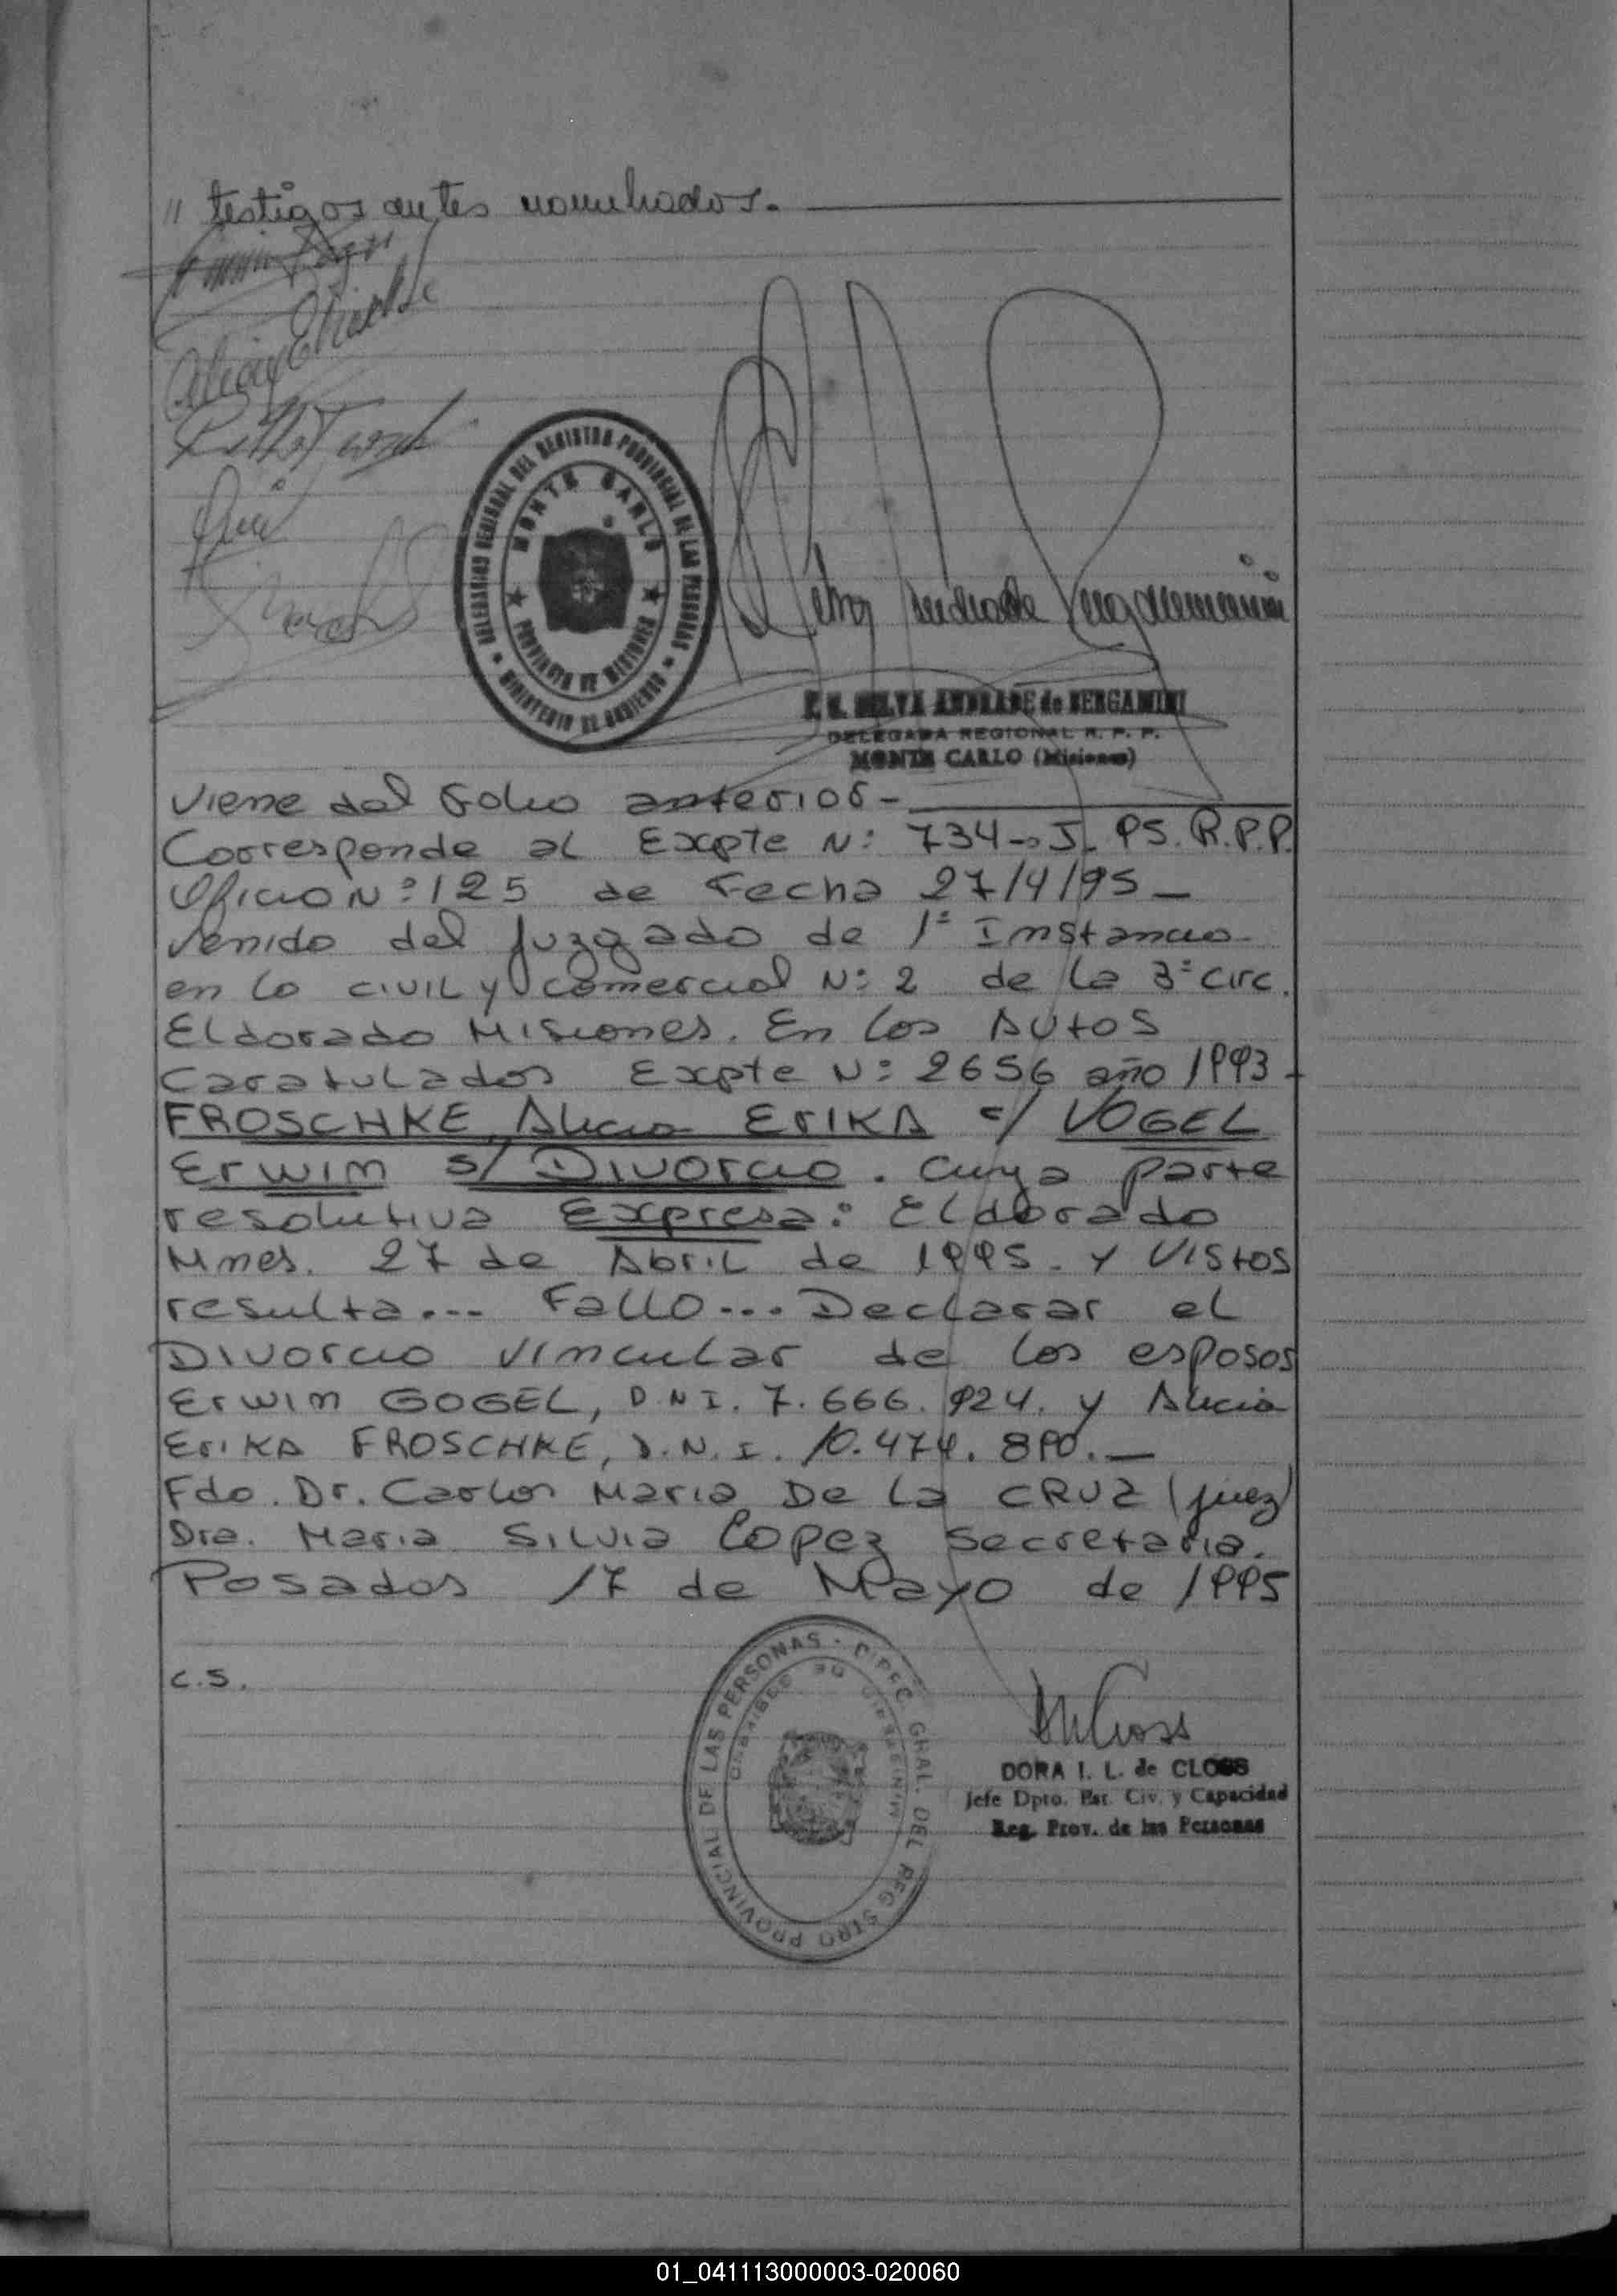 " testigos antes nombrados.
DELEGACION REGIONAL DEL REGISTRO PROVINCIAL DE LAS PERSONAS
MINISTERIO DE GOBIERNO
MONTE CARLO
PROVINCIA DE MISIONES
SELVA ANDRADE de BERGAMINI
DELEGADA REGIONAL R. P. P.
MONTE CARLO (Misiones)
Viene del Folio anterior-
Corresponde al Expte N: 734-J. 95. R.P.P.
Oficio N: 125 de Fecha 27/4/95-
venido del Juzgado de 1ª Instancia
en lo civil y comercial N: 2 de la 3ª circ.
Eldorado Misiones. En los Autos
Caratulados Expte N: 2656 año 1993-
FROSCHKE, Alicia ERIKA c/ VOGEL
Erwin s/ Divorcio. Cuya parte
resolutiva Expresa: Eldorado
Mnes. 27 de Abril de 1995. Y Vistos
resulta... Fallo... Declarar el
Divorcio vincular de los esposos
Erwin GOGEL, D.N.I. 7.666.924. y Alicia
Erika FROSCHKE, D.N.I. 10.474.890.-
Fdo. Dr. Carlos Maria De La CRUZ (juez)
Dra. Maria Silvia Lopez Secretaria.
Posadas 17 de Mayo de 1995
C.S.
DIREC. GRAL. DEL REGISTRO PROVINCIAL DE LAS PERSONAS
DORA I. L. de CLOSS
Jefe Dpto. Est. Civ. y Capacidad
Reg. Prov. de las Personas
01_041113000003-020060